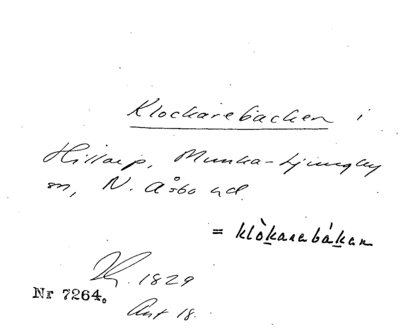 Klockarebäcken i
Hillarp, Munka-Ljungby
sn, N. Åsbo hd.
= klòkarebákan
1829
Nr 7264. Ant 18.